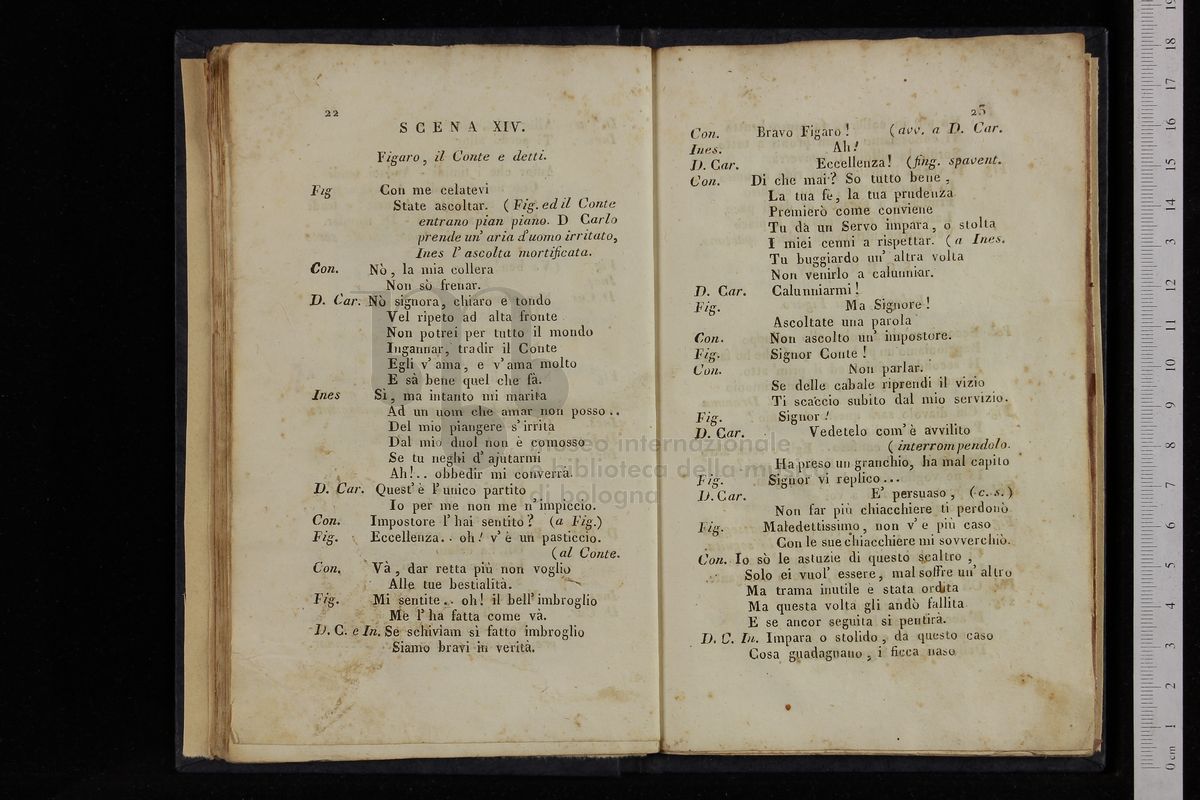 22
SCENA XIV.
Figaro, il Conte e detti.
Fig Con me celatevi
State ascoltar. (Fig. ed il Conte
entrano pian piano. D Carlo
prende un' aria d'uomo irritato,
Ines l' ascolta mortificata.
Con. Nò, la mia collera
Non sò frenar.
D. Car. Nò signora, chiaro e tondo
Vel ripeto ad alta fronte
Non potrei per tutto il mondo
Ingannar, tradir il Conte
Egli v' ama, e v' ama molto
E sà bene quel che fà.
Ines Sì, ma intanto mi marita
Ad un uom che amar non posso..
Del mio piangere s' irrita
Dal mio duol non è comosso
Se tu neghi d' ajutarmi
Ah!.. obbedir mi converrà.
D. Car. Quest' è l' unico partito
Io per me non me n' impiccio.
Con. Impostore l' hai sentito? (a Fig.)
Fig. Eccellenza.. oh! v' è un pasticcio.
(al Conte.
Con. Và, dar retta più non voglio
Alle tue bestialità.
Fig. Mi sentite.. oh! il bell' imbroglio
Me l' ha fatta come và.
D. C. e In. Se schiviam sì fatto imbroglio
Siamo bravi in verità.
23
Con. Bravo Figaro! (avv. a D. Car.
Ines. Ah!
D. Car. Eccellenza! (fing. spavent.
Con. Di che mai? So tutto bene,
La tua fè, la tua prudenza
Premierò come conviene
Tu dà un Servo impara, o stolta
I miei cenni a rispettar. (a Ines.
Tu buggiardo un' altra volta
Non venirlo a calunniar.
D. Car. Calunniarmi!
Fig. Ma Signore!
Ascoltate una parola
Con. Non ascolto un' impostore.
Fig. Signor Conte!
Con. Non parlar.
Se delle cabale riprendi il vizio
Ti scaccio subito dal mio servizio.
Fig. Signor!
D. Car. Vedetelo com' è avvilito
(interrompendolo.
Ha preso un granchio, ha mal capito
Fig. Signor vi replico...
D. Car. E' persuaso, (c. s.)
Non far più chiacchiere ti perdonò
Fig. Maledettissimo, non v' e più caso
Con le sue chiacchiere mi sovverchiò.
Con. Io sò le astuzie di questo scaltro,
Solo ei vuol' essere, mal soffre un' altro
Ma trama inutile e stata ordita
Ma questa volta gli andò fallita
E se ancor seguita si pentirà.
D. C. In. Impara o stolido, dà questo caso
Cosa guadagnano, i ficca naso
museo internazionale
e biblioteca della musica
di bologna
0 cm 1 2 3 4 5 6 7 8 9 10 11 12 13 14 15 16 17 18 19